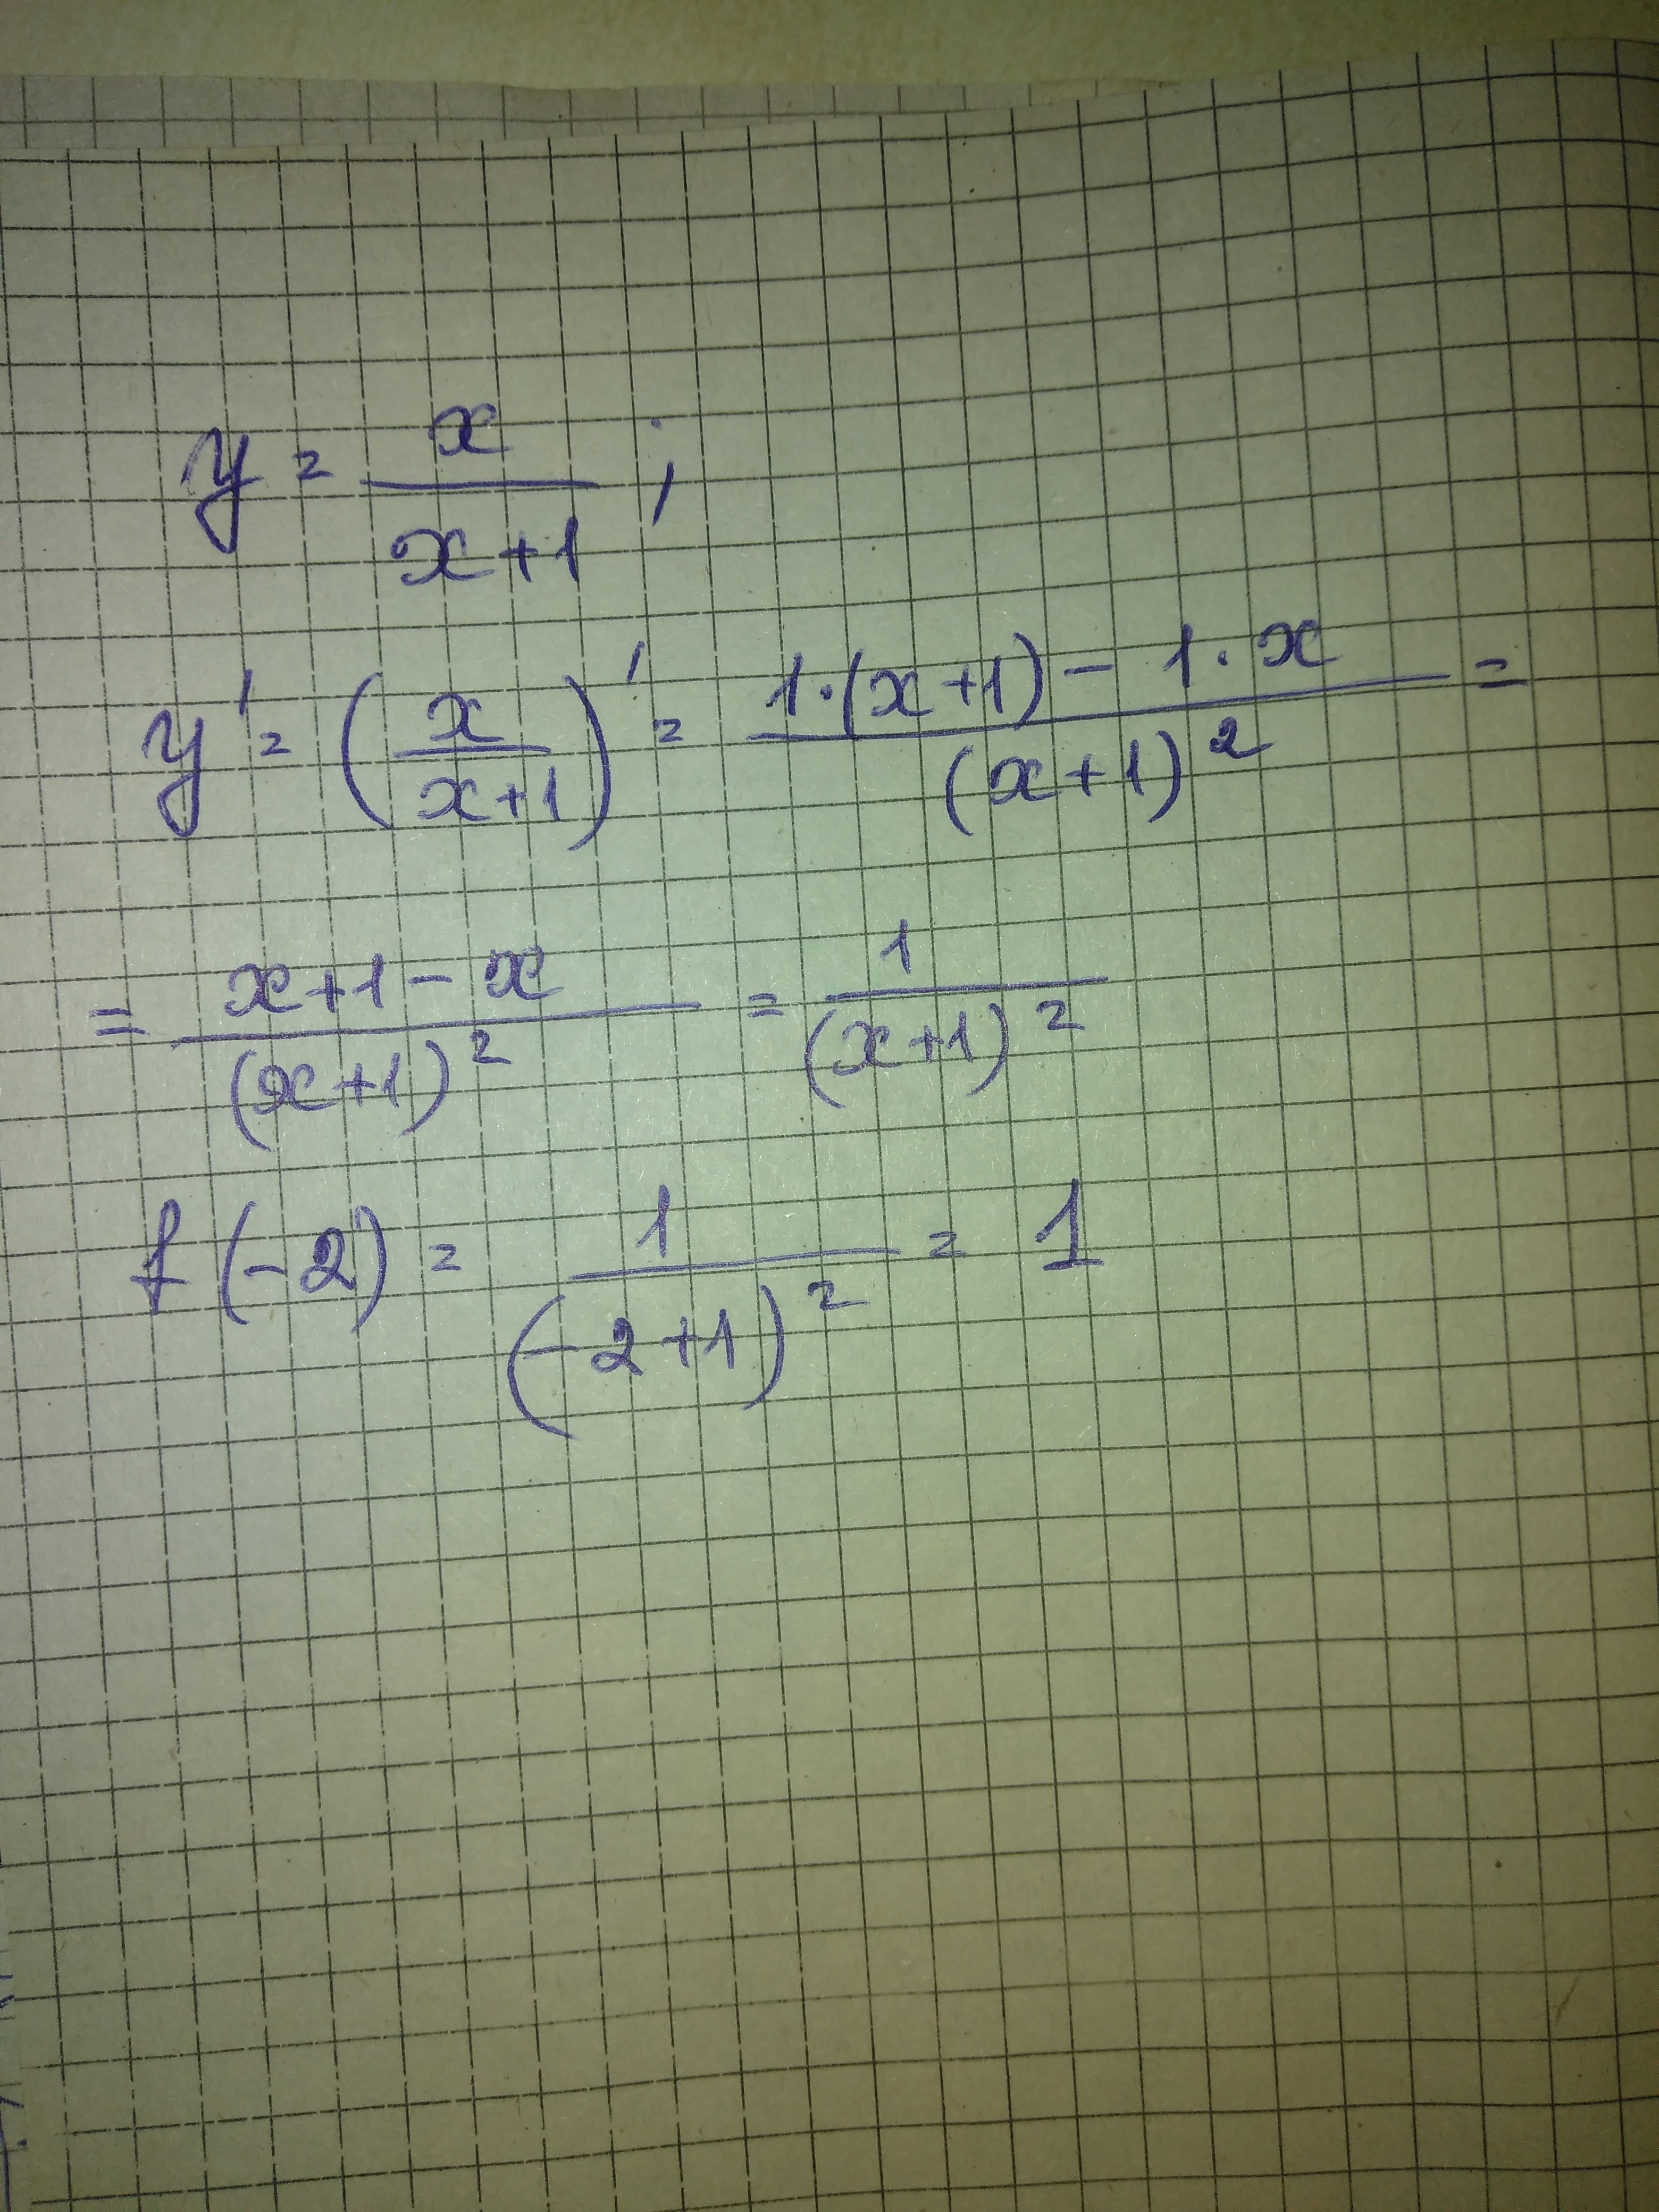 y = x/(x+1) ;
y' = (x/(x+1))' = (1·(x+1) - 1·x)/(x+1)² =
= (x+1-x)/(x+1)² = 1/(x+1)²
f(-2) = 1/(-2+1)² = 1